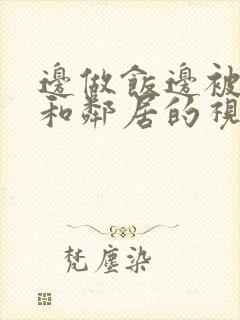 邊做飯邊被
和鄰居的視
梵塵染